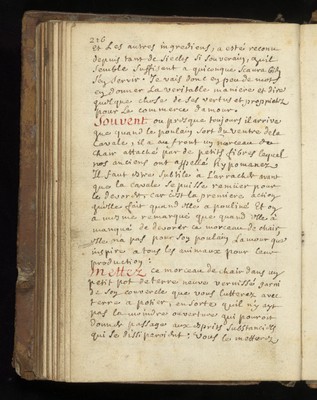 226
Et Les autres ingrediens, a esté reconu
depuis tant de siecles si souverain, qu'il
semble suffisant a quiconque scaura bien
s'en servir. Je vais donc en peu de mots
en donner La veritable maniere et dire
quelque chose de ses vertus et proprietez
pour Le commerce d'amour.
Souvent ou presque toujours il arrive
que quand le poulain sort du ventre de la
cavale, il a au front un morceau de
chair attaché par de petits fibres lequel
nos anciens ont appellé hypomanez
Il faut estre subtile a L'arracher avant
que la cavale se puisse remuer pour
le devorer car c'est la premiere action
qu'elle fait quand elle a pouliné Et on
a mesme remarqué que quand elle a
manqué de devorer ce morceau de chair
elle n'a pas pour son poulain L'amour que
inspire a tous les animaux pour leur
production:
Mettez ce morceau de chair dans un
petit pot de terre neuve vernissé garni
de son couvercle que vous lutterez avec
terre a potier, en sorte qu'il n'y ayt
pas la moindre ouverture qui pourroit
donner passage aux esprits substantiels
qui se dissiperoient: vous le metterez